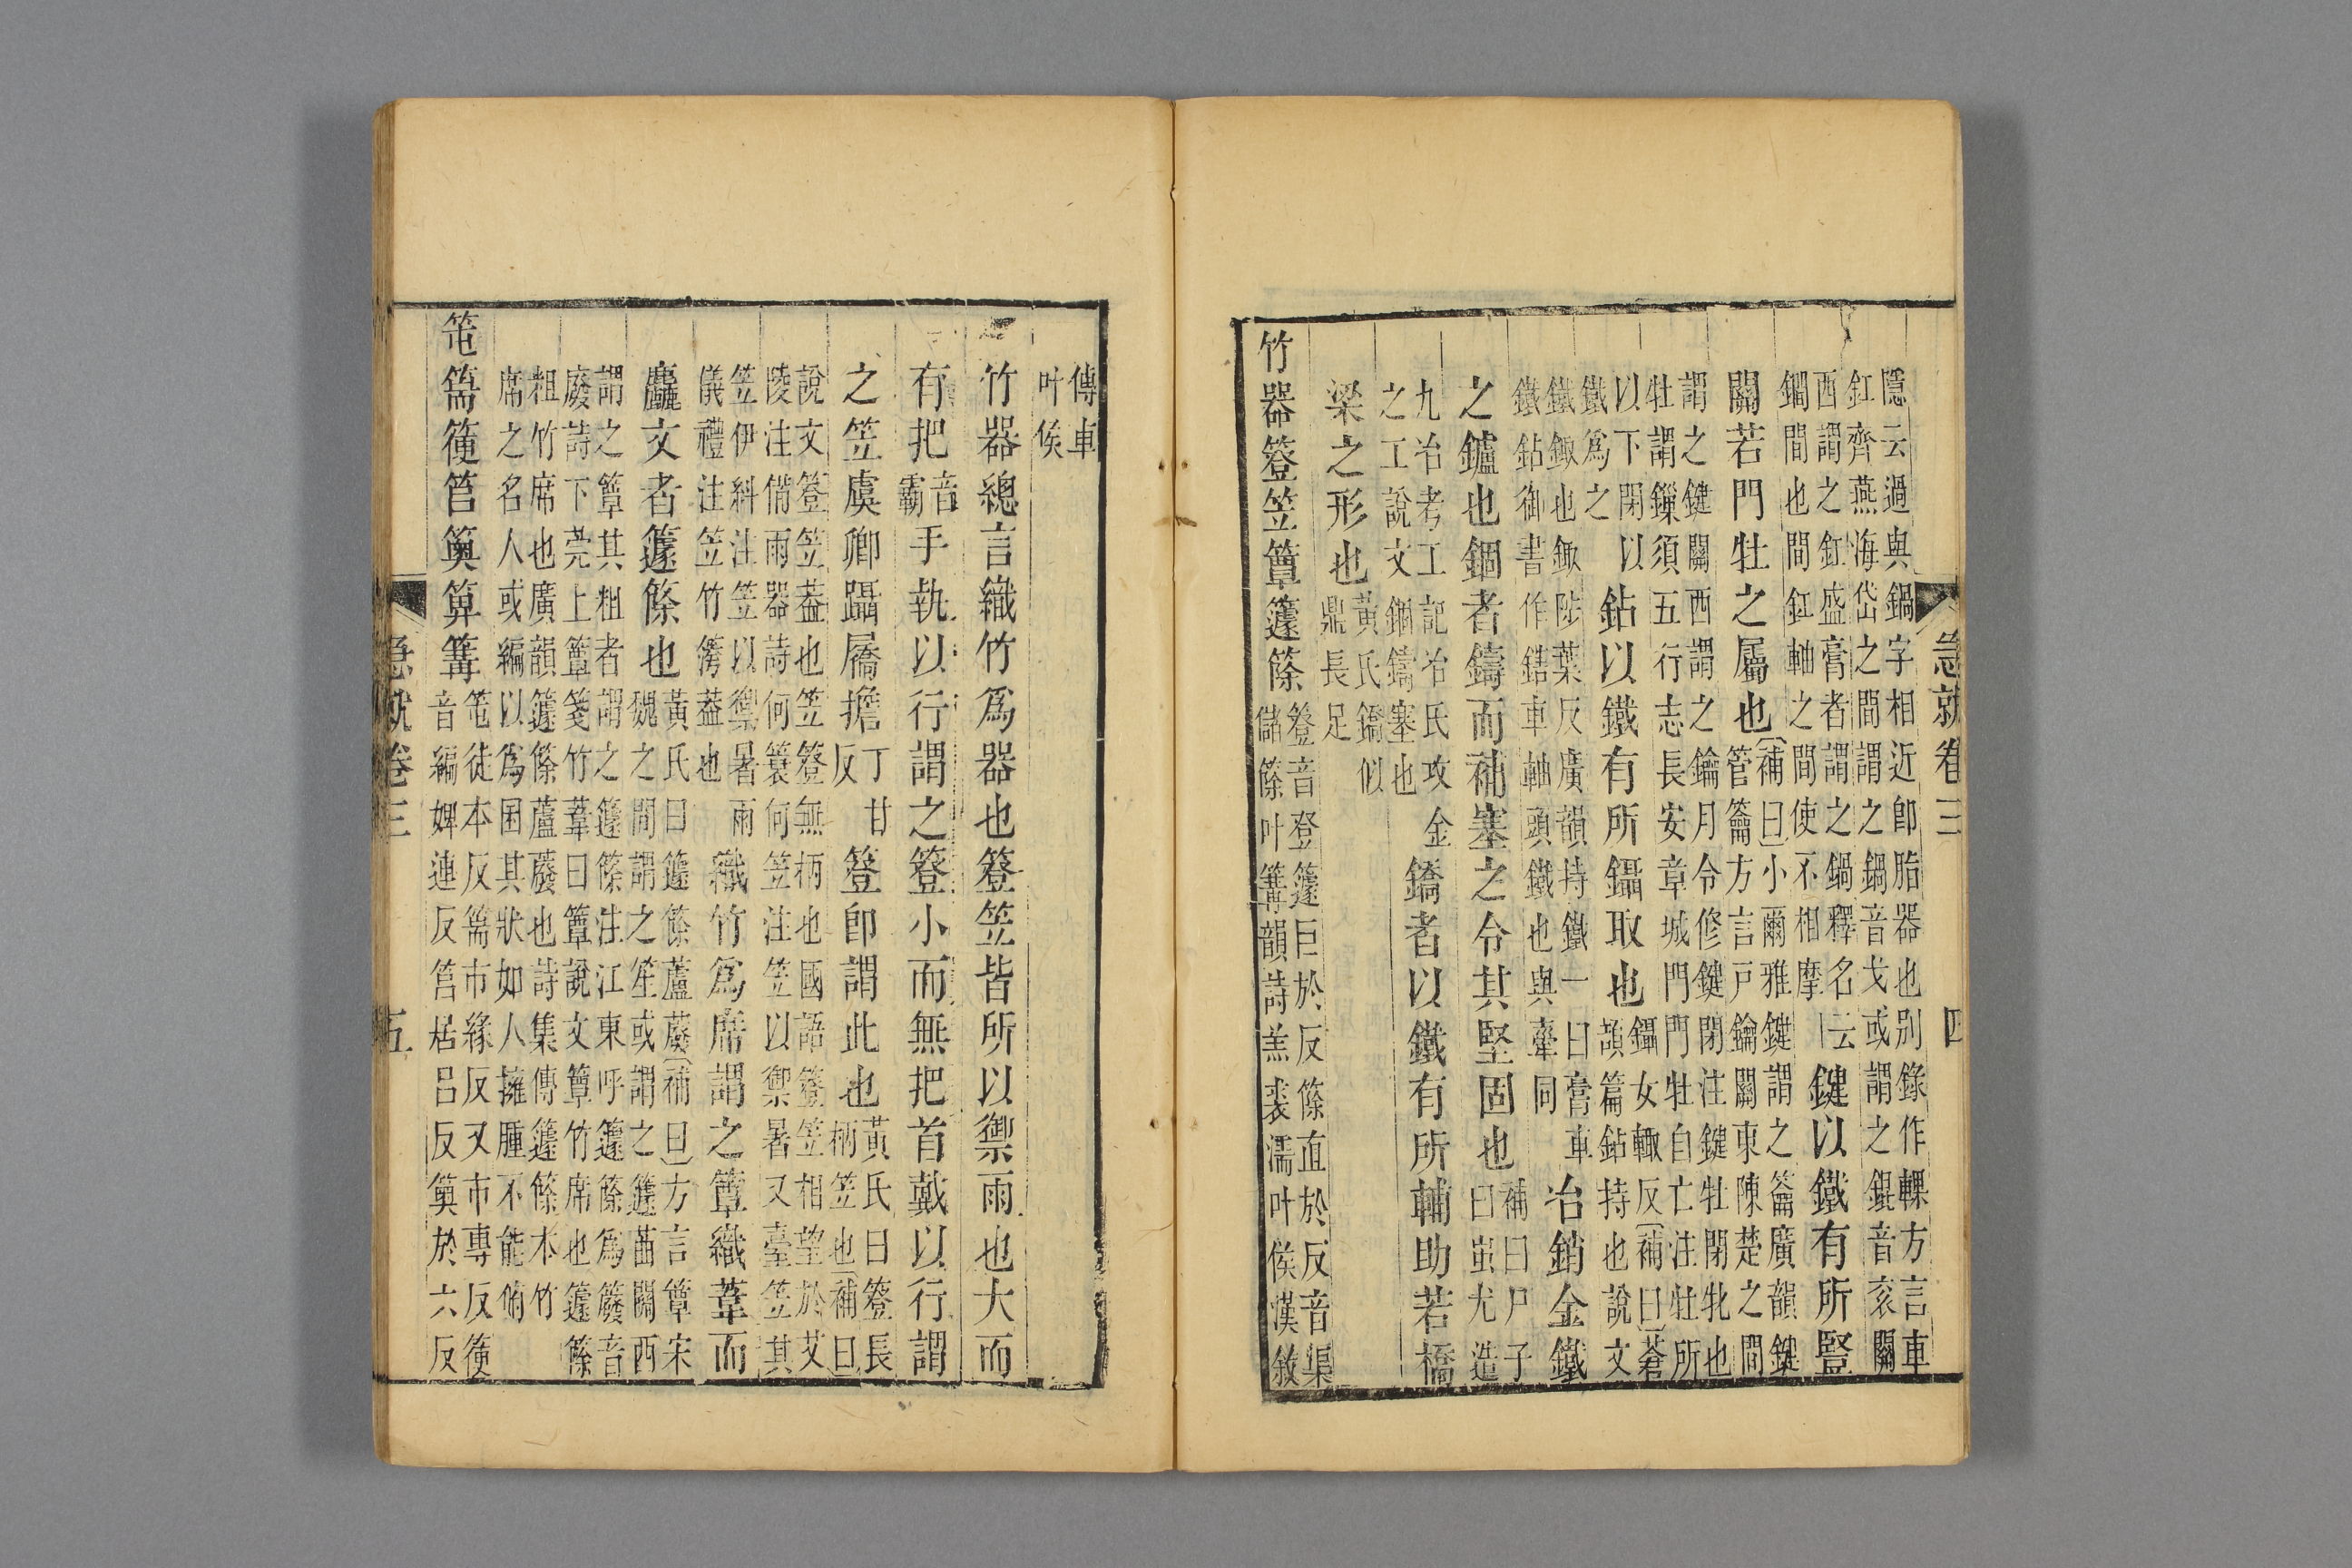 急就卷三
四
隱云過與鍋字相近卽脂器也別錄作輠方言車
釭齊燕海岱之間謂之鍋音戈或謂之錕音衮關
西謂之釭盛膏者謂之鍋釋名云
鐧間也間釭軸之間使不相摩
鍵以鐵有所豎
關若門牡之屬也
補曰小爾雅鍵謂之籥廣韻鍵
管籥方言戶鑰關東陳楚之間
謂之鍵關西謂之鑰月令修鍵閉注鍵牡閉牝也
牡謂鑰須五行志長安章城門門牡自亡注牡所
以下閉以
鐵爲之
鉆以鐵有所鑷取也
鑷女輒反補曰蒼
頡篇鉆持也說文
鐵鋷也鋷陟葉反廣韻持鐵一曰膏車
鐵鉆御書作鍩車軸頭鐵也與牽同
冶銷金鐵
之鑪也錮者鑄而補塞之令其堅固也
補曰尸子
曰蚩尤造
九冶考工記冶氏攻金
之工說文錮鑄塞也
鐈者以鐵有所輔助若橋
梁之形也
黃氏鐈似
鼎長足
竹器簦笠簟籧篨
簦音登籧巨於反篨直於反音渠
儲篨叶篝韻詩羔裘濡叶侯漢敘
傳車
叶侯
竹器總言織竹爲器也簦笠皆所以禦雨也大而
有把
音
霸
手執以行謂之簦小而無把首戴以行謂
之笠虞卿躡屩擔
丁甘
反
簦卽謂此也
黃氏曰簦長
柄笠也補曰
說文簦笠葢也笠簦無柄也國語簦笠相望於艾
陵注備雨器詩何蓑何笠注笠以禦暑又臺笠其
笠伊糾注笠以禦暑雨
儀禮注笠竹䈽葢也
織竹爲席謂之簟織葦而
麤文者籧篨也
黃氏曰籧篨蘆䕠補曰方言簟宋
魏之間謂之笙或謂之籧䒼關西
謂之簟其粗者謂之籧篨注江東呼籧篨爲䉬音
廢詩下莞上簟箋竹葦曰簟說文簟竹席也籧篨
粗竹席也廣韻籧篨蘆䕠也詩集傳籧篨本竹
席之名人或編以爲囷其狀如人擁腫不能俯
笔篅箯筥䉛箅篝
笔徒本反篅市緣反又市專反箯
音編婢連反筥居呂反䉛於六反
急就卷三
五